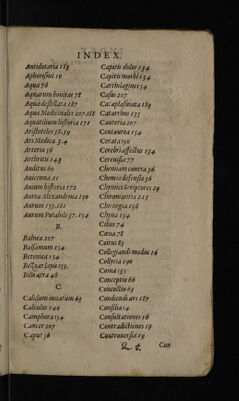 INDEX.
Antidotaria 183
Aphorismi 10
Aqua 76
Aquarum bonitas 78
Aquæ destillatæ 187
Aquæ Medicinales 207.218
Aquatilium historia 171
Aristoteles 58.59
Ars Medica 3.4
Arteriæ 56
Arthritis 143
Auditus 60
Auicenna 21
Auium historia 172
Aurea Alexandrina 190
Aurum 153.181
Aurum Potabile 57.154
B.
Balnea 207
Balsamum 154
Betonica 154
Bezoar lapis 155.
Bilis atra 48
C.
Calidum innatum 63
Calculus 140
Camphora 154
Cancer 207
Caput 56
Capitis dolor 134.
Capitis morbi 134.
Carthlagines 54
Casus 207
Cataplasmata 189
Catarrhus 135
Cauteria 207
Centaurea 154
Cerata 190
Cerebri affectus 134.
Cereuisia 77
Chemiam contra 36
Chemiæ defensio 36
Chymici Scriptores 29
Chiromantia 215
Chirurgia 198
Chyna 154
Cibus 74
Cæna 78
Coitus 83
Collegiandi modus 16
Collyria 190
Coma 135
Conceptio 66
Concoctio 65
Condiendi ars 187
Consilia 14
Consultationes 16
Contradictiones 19
Controuersiæ 19
Con